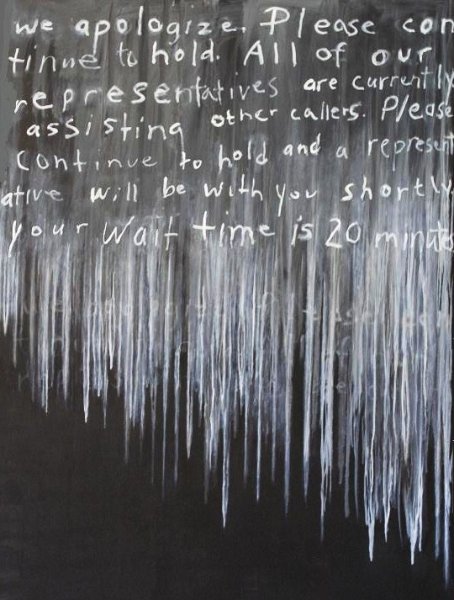 we apologize. Please con
tinue to hold. All of our
representatives are currently
assisting other callers. Please
continue to hold and a represent
ative will be with you shortly
your wait time is 20 minutes